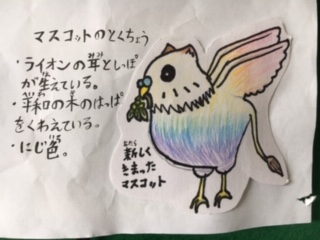 マスコットのとくちょう
・ライオンの耳としっぽ
が生えている。
・平和の木のはっぱ
をくわえている。
・にじ色。
新しく
きまった
マスコット